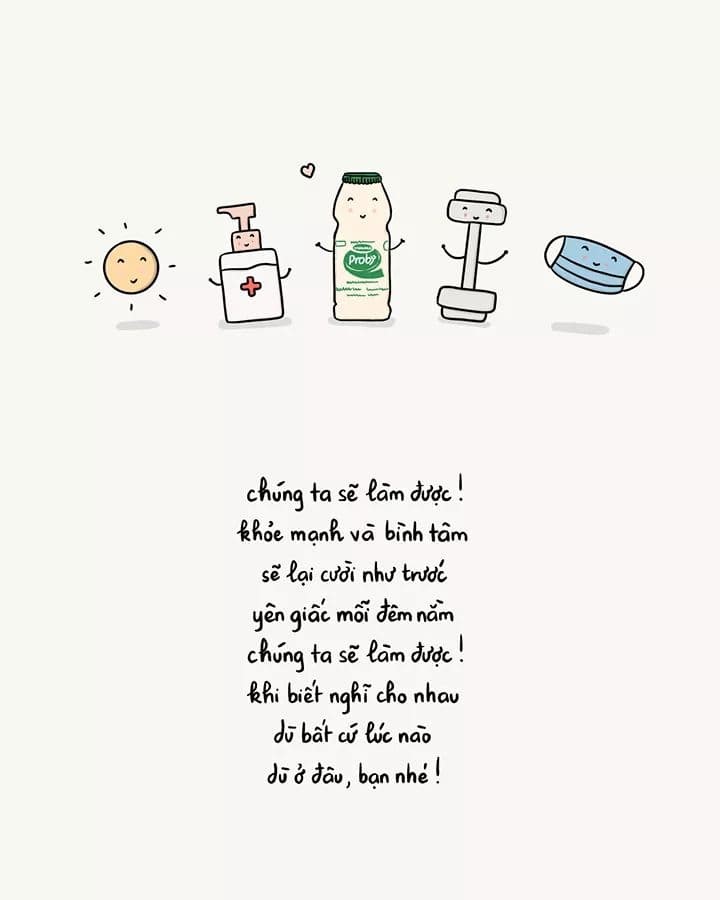 Proby
chúng ta sẽ làm được!
khỏe mạnh và bình tâm
sẽ lại cười như trước
yên giấc mỗi đêm nằm
chúng ta sẽ làm được!
khi biết nghĩ cho nhau
dù bất cứ lúc nào
dù ở đâu, bạn nhé!